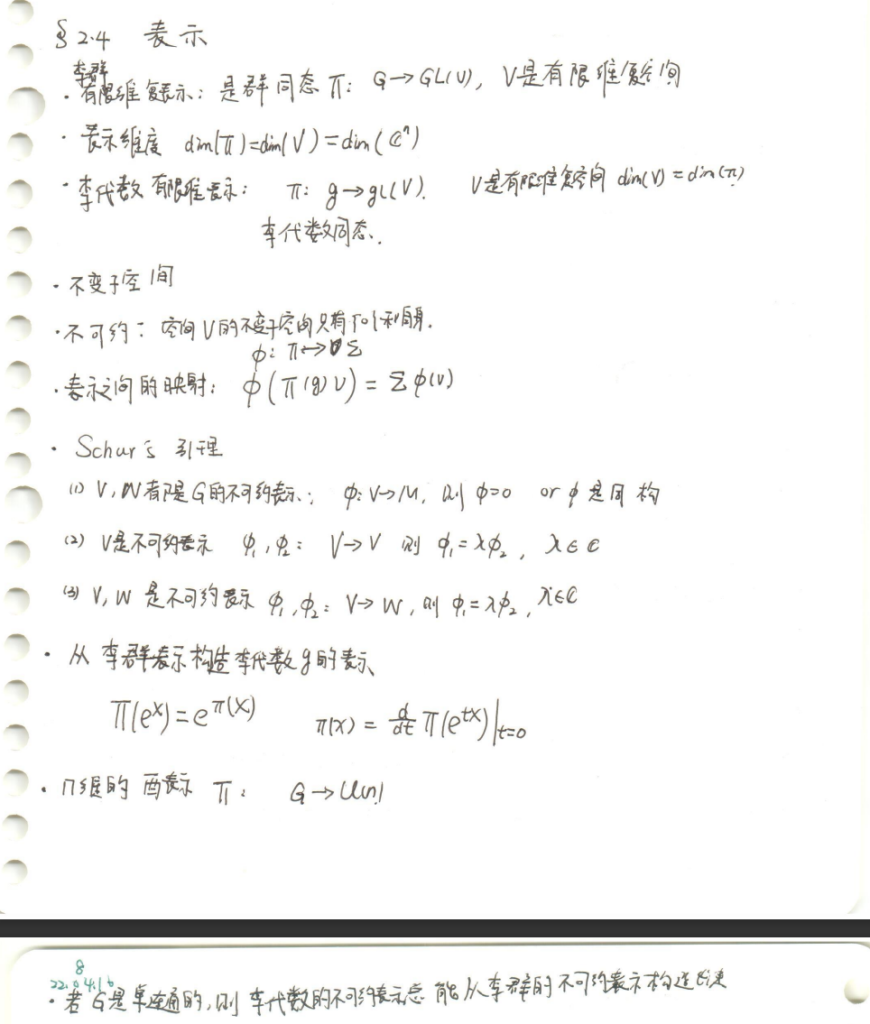 § 2.4 表示
李群
· 有限维复表示: 是群同态 Π: G → GL(V), V是有限维复空间
· 表示维度 dim(Π)=dim(V)=dim(ℂⁿ)
· 李代数有限维表示: π: g → gl(V). V是有限维复空间 dim(V) = dim(π)
李代数同态.
· 不变子空间
· 不可约: 空间V的不变子空间只有{0}和自身.
φ: Π ↔ Σ
· 表示之间的映射: φ(Π(g)v) = Σφ(v)
· Schur's 引理
(1) V, W都是G的不可约表示; φ: V→W, 则 φ=0 or φ是同构
(2) V是不可约表示 φ₁, φ₂: V→V 则 φ₁=λφ₂, λ∈ℂ
(3) V, W 是不可约表示 φ₁, φ₂: V→W, 则 φ₁=λφ₂, λ∈ℂ
· 从李群表示构造李代数g的表示
Π(eˣ) = e^π(X) π(X) = d/dt Π(e^tX)|t=0
· n维的酉表示 Π: G → U(n)
8
22.04.16
· 若G是单连通的, 则李代数的不可约表示总能从李群的不可约表示构造出来